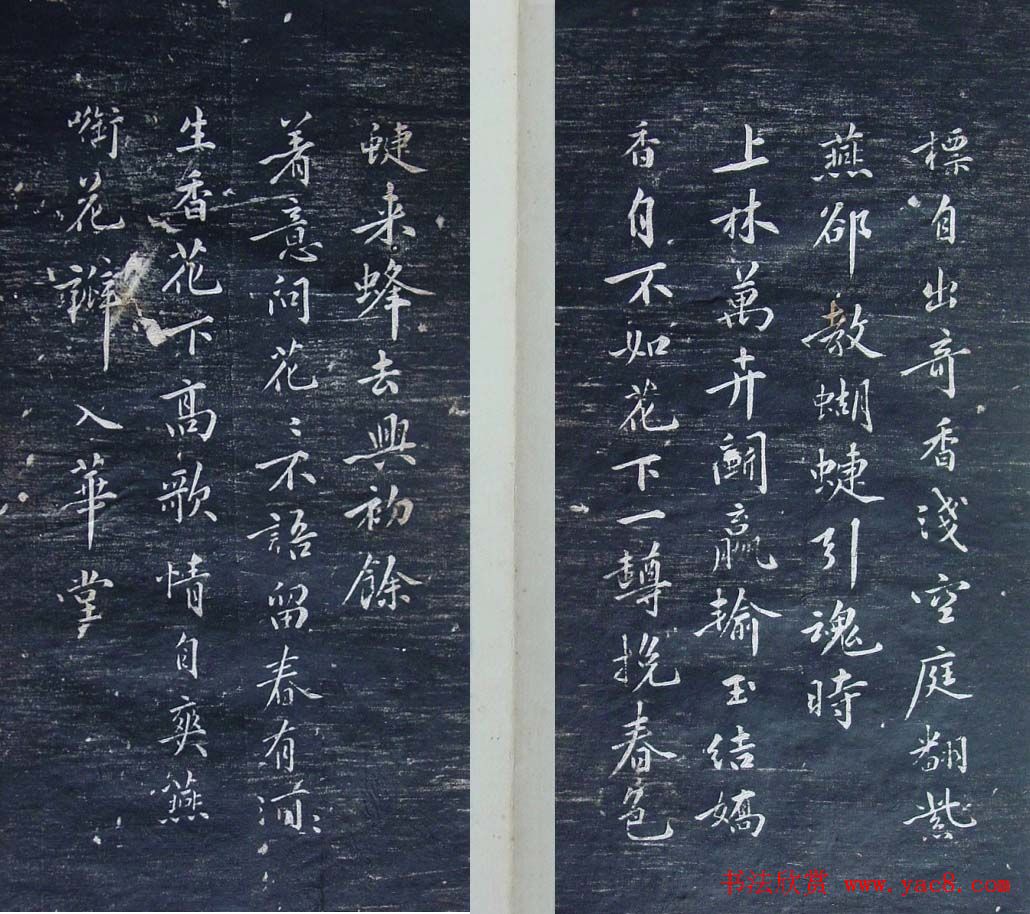 標自出奇香淺空庭翻紫
燕郤教蝴蜨引魂時
上林萬卉鬭贏輸玉結嬌
香自不如花下一罇挽春色
蜨来蜂去興初餘
着意问花〻不語留春有酒〻
生香花下高歌情自爽燕
啣花瓣入華堂
书法欣赏 www.yac8.com